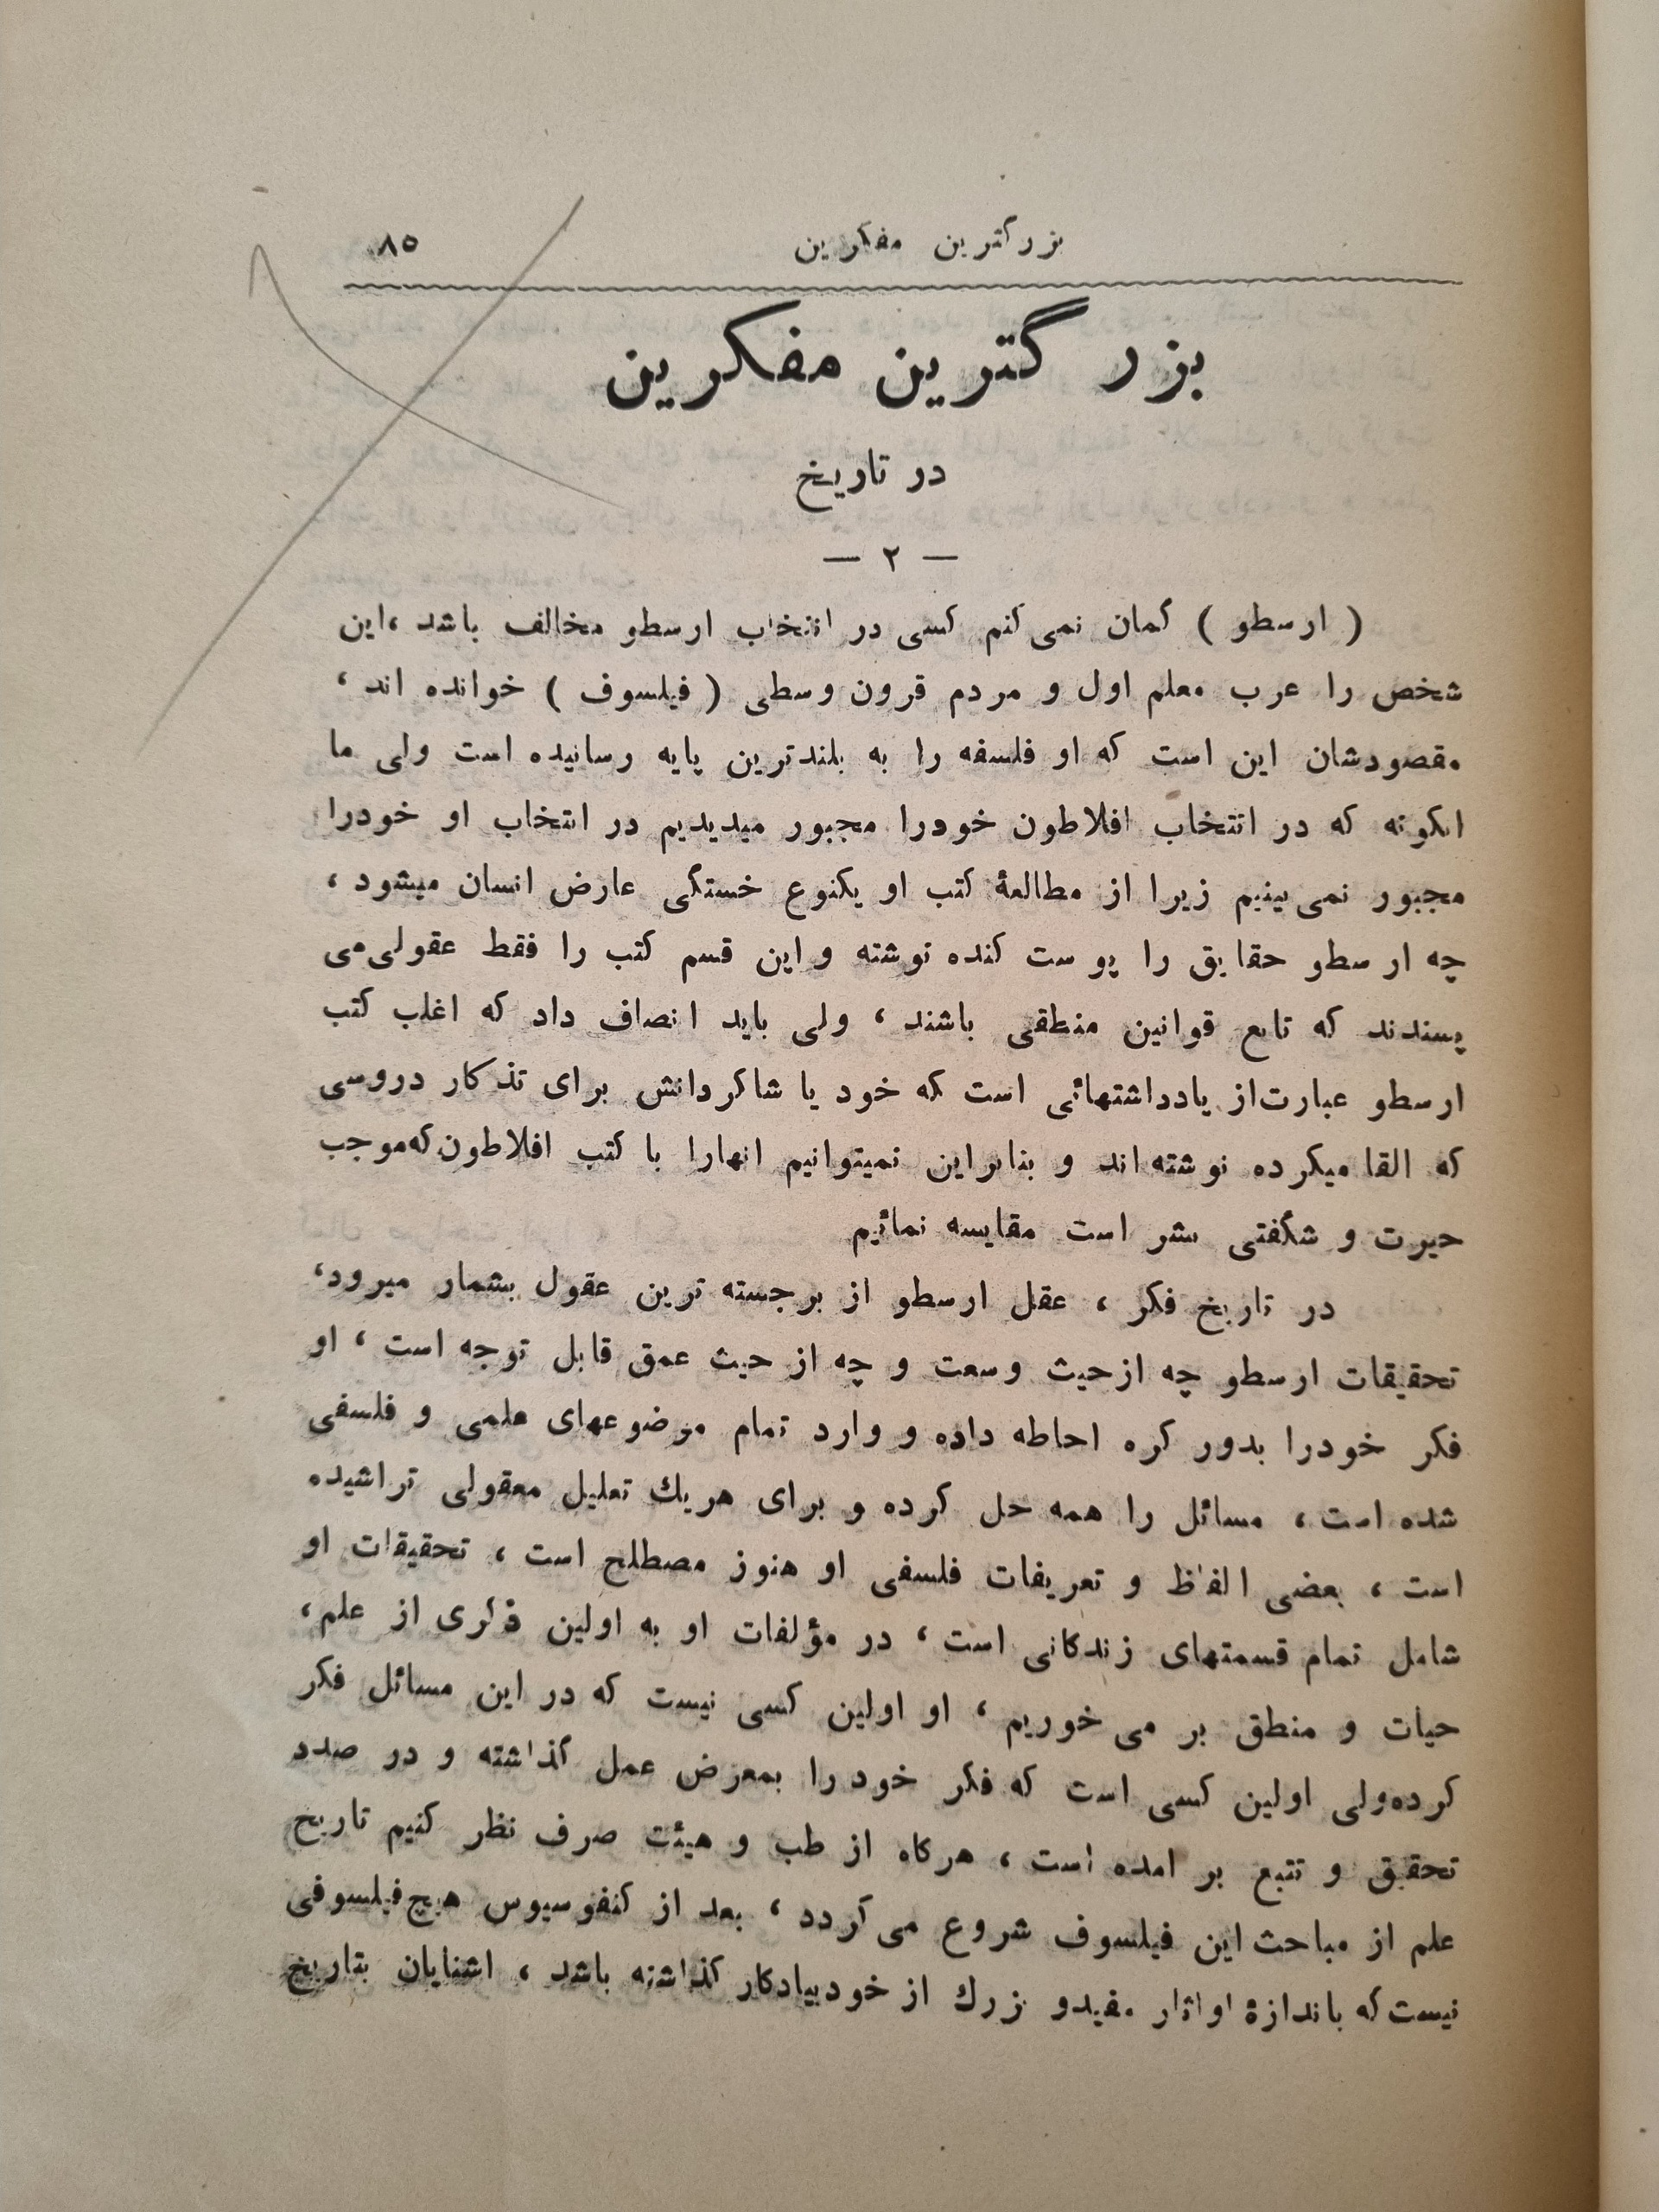 بزرگترین مفکرین ۸۵
بزرگترین مفکرین
در تاریخ
— ۲ —
( ارسطو ) گمان نمی‌کنم کسی در انتخاب ارسطو مخالف باشد ،این
شخص را عرب معلم اول و مردم قرون وسطی ( فیلسوف ) خوانده اند ،
مقصودشان این است که او فلسفه را به بلندترین پایه رسانیده است ولی ما
انگونه که در انتخاب افلاطون خودرا مجبور میدیدیم در انتخاب او خودرا
مجبور نمی‌بینیم زیرا از مطالعهٔ کتب او یکنوع خستگی عارض انسان میشود ،
چه ارسطو حقایق را پوست کنده نوشته و این قسم کتب را فقط عقولی‌می
پسندند که تابع قوانین منطقی باشند ، ولی باید انصاف داد که اغلب کتب
ارسطو عبارت‌از یادداشتهائی است که خود یا شاکردانش برای تذکار دروسی
که القا میکرده نوشته‌اند و بنابراین نمیتوانیم انهارا با کتب افلاطون‌که‌موجب
حیرت و شگفتی بشر است مقایسه نمائیم
در تاریخ فکر ، عقل ارسطو از برجسته ترین عقول بشمار میرود،
تحقیقات ارسطو چه ازحیث وسعت و چه از حیث عمق قابل توجه است ، او
فکر خودرا بدور کره احاطه داده و وارد تمام موضوعهای علمی و فلسفی
شده است ، مسائل را همه حل کرده و برای هریك تعلیل معقولی تراشیده
است ، بعضی الفاظ و تعریفات فلسفی او هنوز مصطلح است ، تحقیقات او
شامل تمام قسمتهای زندکانی است ، در مؤلفات او به اولین ذکری از علم،
حیات و منطق بر می خوریم ، او اولین کسی نیست که در این مسائل فکر
کرده‌ولی اولین کسی است که فکر خود را بمعرض عمل گذاشته و در صدد
تحقیق و تتبع بر امده است ، هرکاه از طب و هیئت صرف نظر کنیم تاریخ
علم از مباحث این فیلسوف شروع می‌گردد ، بعد از کنفوسیوس هیچ‌فیلسوفی
نیست‌که باندازهٔ او اثار مفیدو بزرك از خودبیادکار گذاشته باشد ، اشنایان بتاریخ